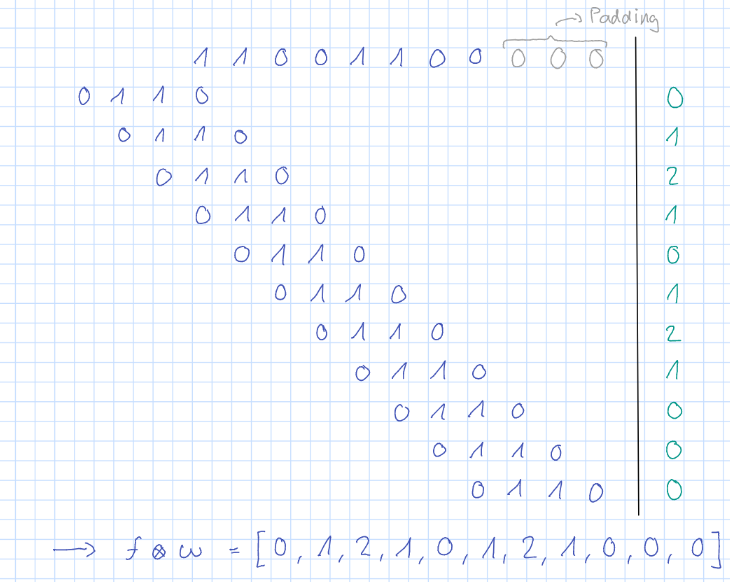 → Padding
1 1 0 0 1 1 0 0 0 0 0
0 1 1 0 0
0 1 1 0 1
0 1 1 0 2
0 1 1 0 1
0 1 1 0 0
0 1 1 0 1
0 1 1 0 2
0 1 1 0 1
0 1 1 0 0
0 1 1 0 0
0 1 1 0 0
→ f ⊗ w = [0, 1, 2, 1, 0, 1, 2, 1, 0, 0, 0]